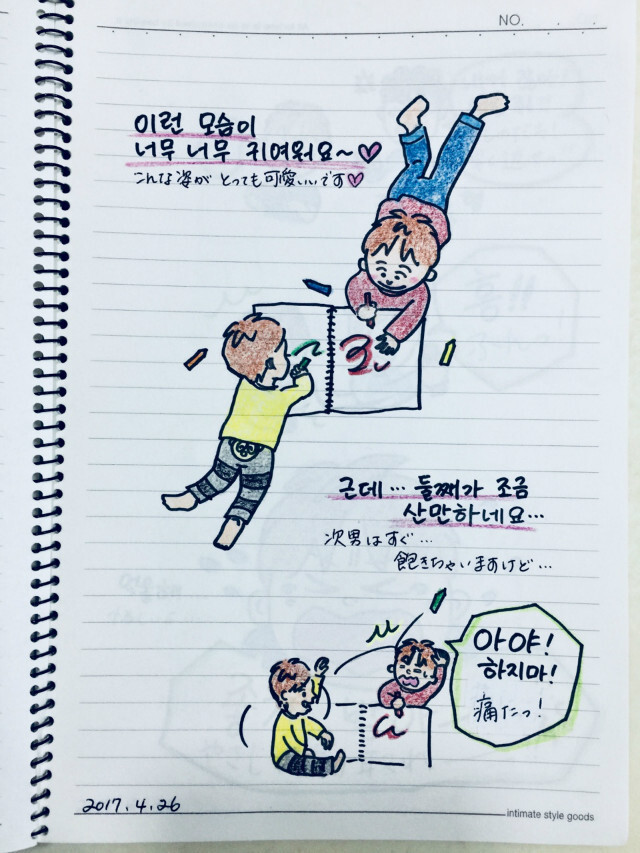 NO.
이런 모습이
너무 너무 귀여워요~♡
こんな姿が とっても可愛いいです♡
근데… 둘째가 조금
산만하네요…
次男はすぐ…
飽きちゃいますけど…
아야!
하지마!
痛たっ!
2017.4.26
intimate style goods